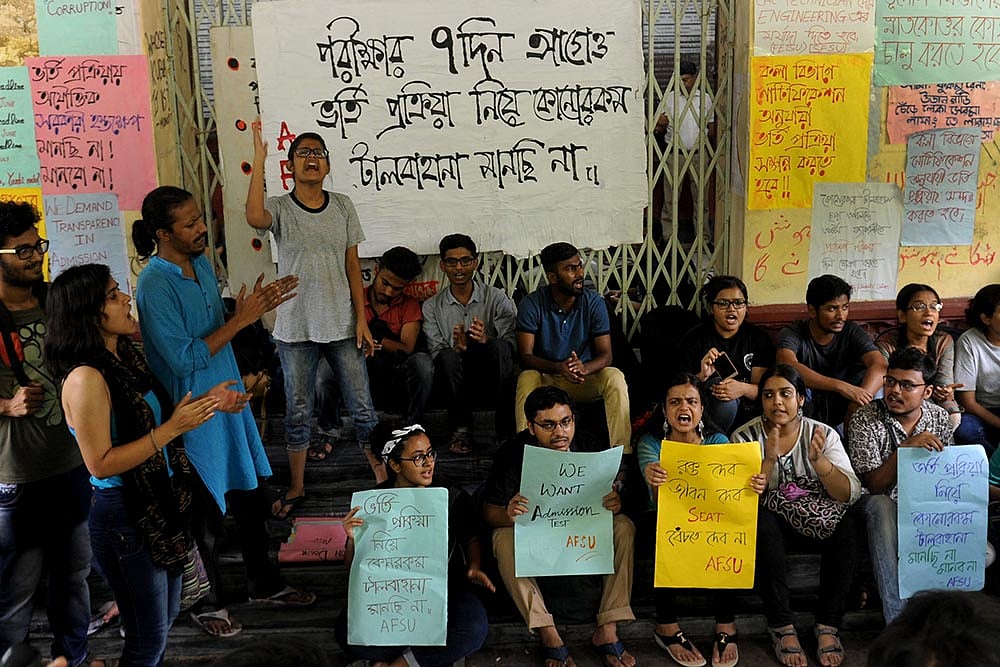 CORRUPTION!
ভর্তি প্রক্রিয়ায়
অযৌক্তিক
সরকারী হস্তক্ষেপ
মানছি না!
মানবো না!
WE DEMAND
TRANSPARENCY
IN
ADMISSION
পরীক্ষার ৭দিন আগেও
ভর্তি প্রক্রিয়া নিয়ে কোনোরকম
টালবাহানা মানছি না..
ENGINEERING
(FETSU)
মাতকোত্তর কো
চালু করতে হবে
কলা বিভাগে
নোটিফিকেশন
অনুযায়ী
ভর্তি প্রক্রিয়া
সম্পন্ন করতে
হবে!!
কলা বিভাগে
নোটিফিকেশন
অনুযায়ী ভর্তি
প্রক্রিয়া সম্পন্ন
করতে হবে।
ভর্তি
প্রক্রিয়া
নিয়ে
কোনোরকম
টালবাহানা
মানছি না.
AFSU
WE
WANT
ADMISSION
TEST
AFSU
রক্ত দেব
জীবন দেব
SEAT
বেঁচতে দেব না
AFSU
ভর্তি প্রক্রিয়া
নিয়ে
কোনোরকম
টালবাহানা
মানছি না
মানব না
- AFSU